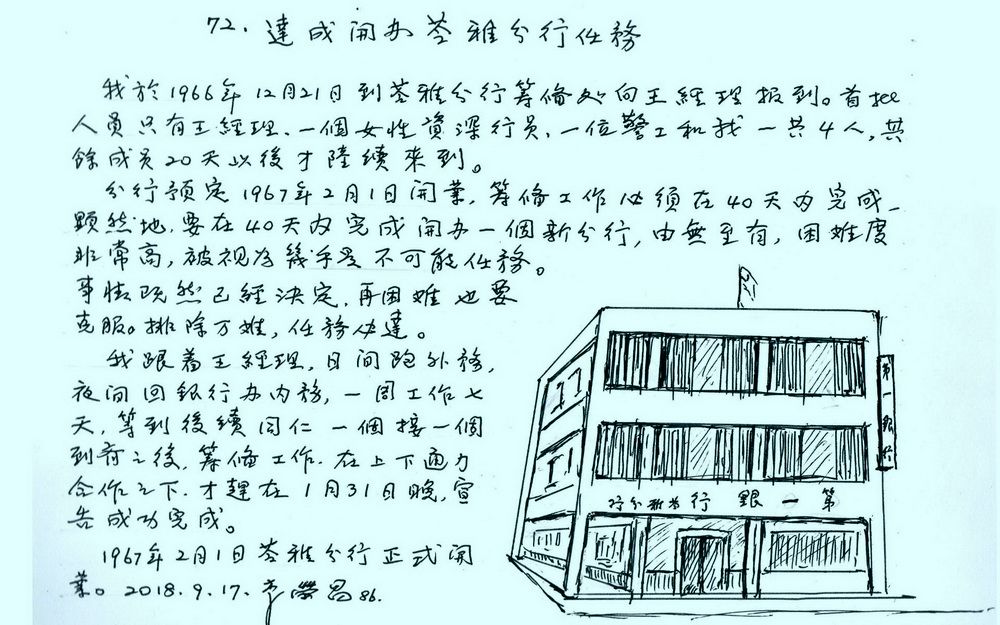 72. 達成開办苓雅分行任務
我於1966年12月21日到苓雅分行筹備处向王經理报到。首批
人员只有王經理、一個女性資深行员、一位警工和我一共4人,其
餘成员20天以後才陸續來到。
分行預定1967年2月1日開業,筹備工作必須在40天內完成。
顯然地,要在40天內完成開办一個新分行,由無至有,困难度
非常高,被視为幾乎是不可能任務。
事情既然已經決定,再困难也要
克服。排除万难,任務必達。
我跟着王經理,日间跑外務,
夜间回銀行办內務,一周工作七
天,等到後續同仁一個接一個
到齐之後,筹備工作.在上下通力
合作之下.才趕在1月31日晚,宣
告成功完成。
1967年2月1日苓雅分行正式開
業。2018.9.17.李榮昌86.
第一銀行
行分雅苓行銀一第